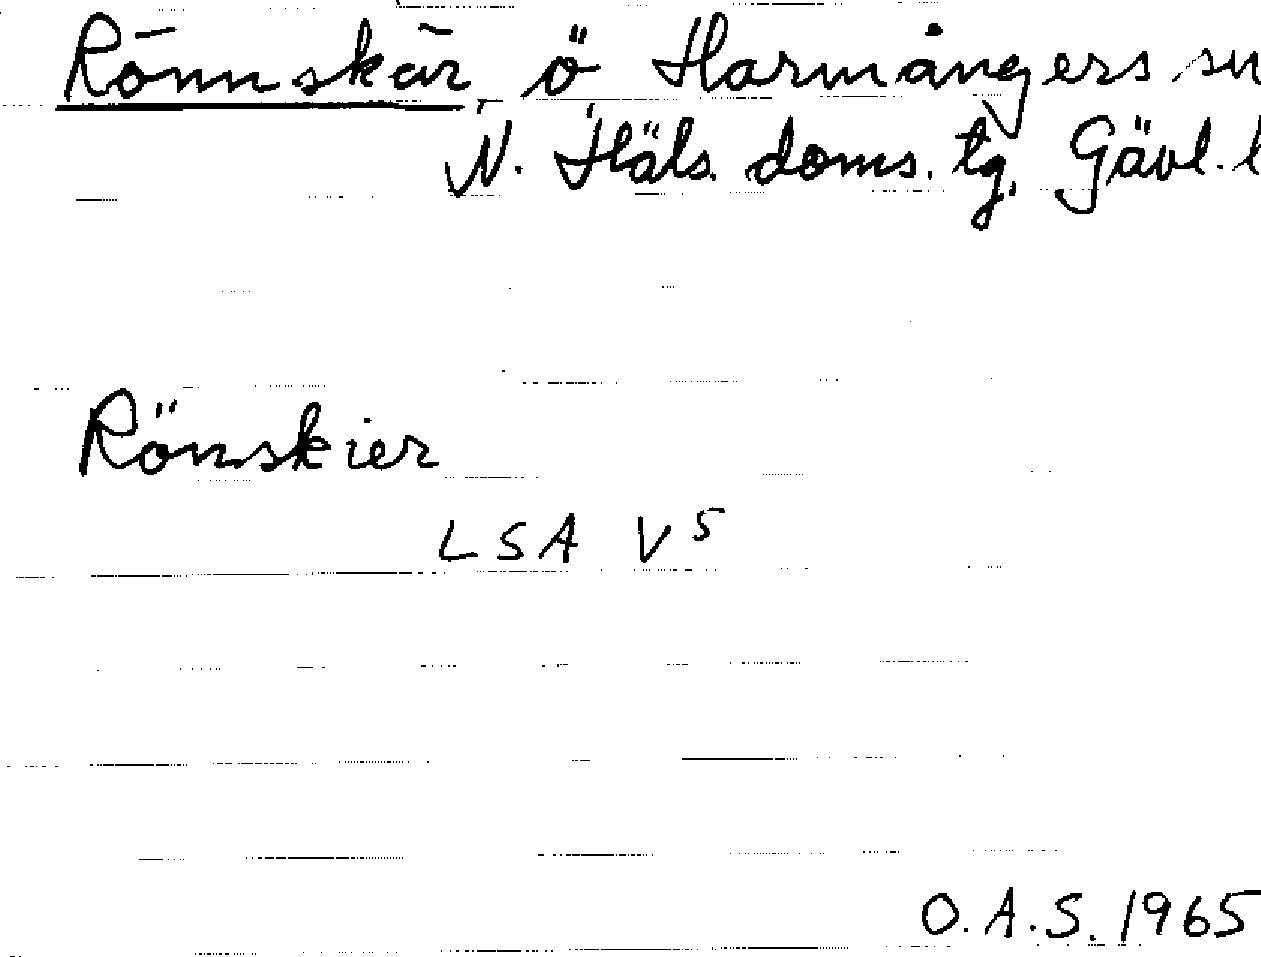 Rönnskär, ö Harmångers sn
N. Häls. doms. tg, Gävl. l
Rönskier
LSA V5
O.A.S. 1965